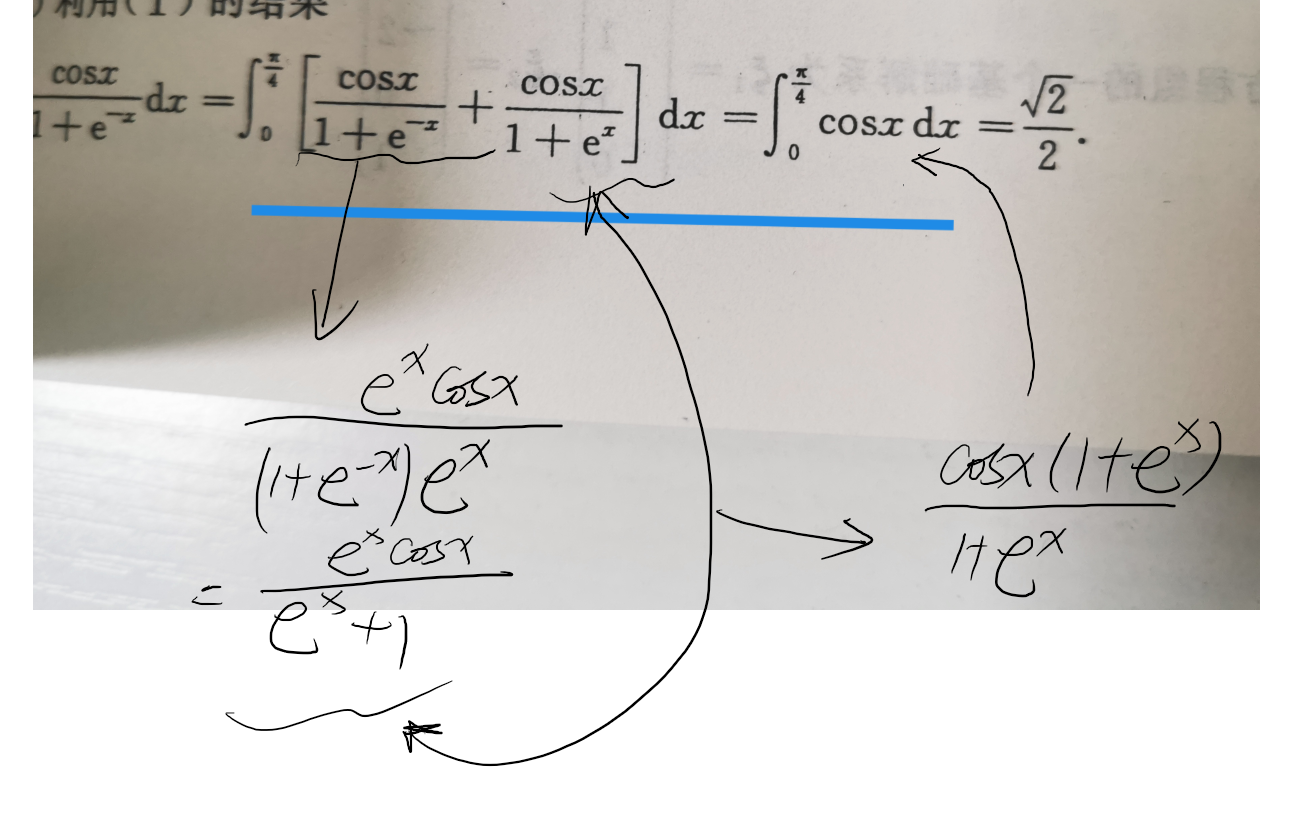 ) 利用(1)的结果
cosx/(1+e^{-x}) dx = ∫_0^{π/4} [cosx/(1+e^{-x}) + cosx/(1+e^x)] dx = ∫_0^{π/4} cosx dx = √2/2.
e^x cosx/((1+e^{-x})e^x)
= e^x cosx/(e^x+1)
cosx(1+e^x)/(1+e^x)